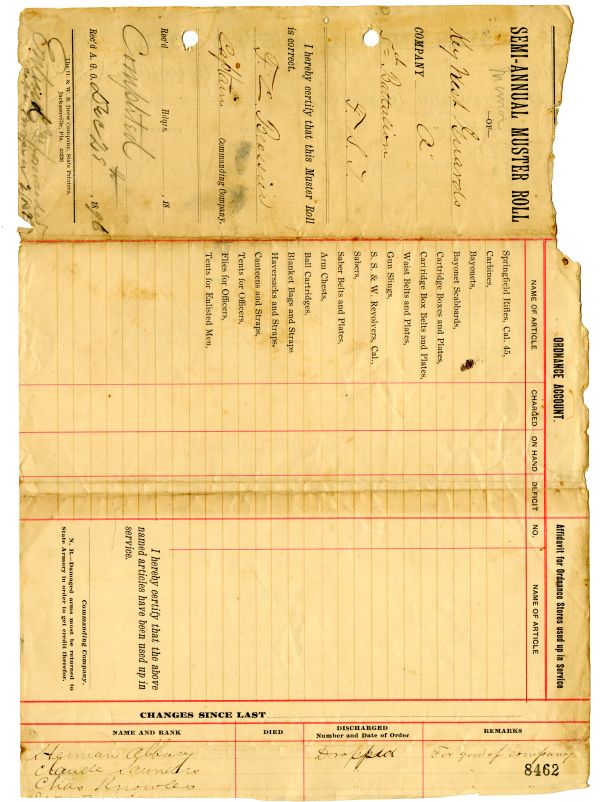 SEMI-ANNUAL MUSTER ROLL
—OF—
Key West Guards
COMPANY
5th Battalion
F. S. T.
I hereby certify that this Muster Roll
is correct.
Captain
Commanding Company.
Rec'd Hdqrs. 18
Completed
Rec'd A. G. O. Dec 28th, 1896
The H. & W. B. Drew Company, State Printers,
Jacksonville, Fla.
ORDNANCE ACCOUNT.
NAME OF ARTICLE CHARGED ON HAND DEFICIT
Springfield Rifles, Cal. 45,
Carbines,
Bayonets,
Bayonet Scabbards,
Cartridge Boxes and Plates,
Cartridge Box Belts and Plates,
Waist Belts and Plates,
Gun Slings,
S. S. & W. Revolvers, Cal.,
Sabers,
Saber Belts and Plates,
Arm Chests,
Ball Cartridges,
Blanket Bags and Straps
Haversacks and Straps,
Canteens and Straps,
Tents for Officers,
Flies for Officers,
Tents for Enlisted Men,
Affidavit for Ordnance Stores used up in Service
NO. NAME OF ARTICLE
I hereby certify that the above
named articles have been used up in
service.
Commanding Company.
N. B.—Damaged arms must be returned to
State Armory in order to get credit therefor.
CHANGES SINCE LAST
NAME AND RANK DIED DISCHARGED Number and Date of Order REMARKS
Herman Albury Dropped For good of company
Claude Saunders " "
Chas Knowles " "
8462